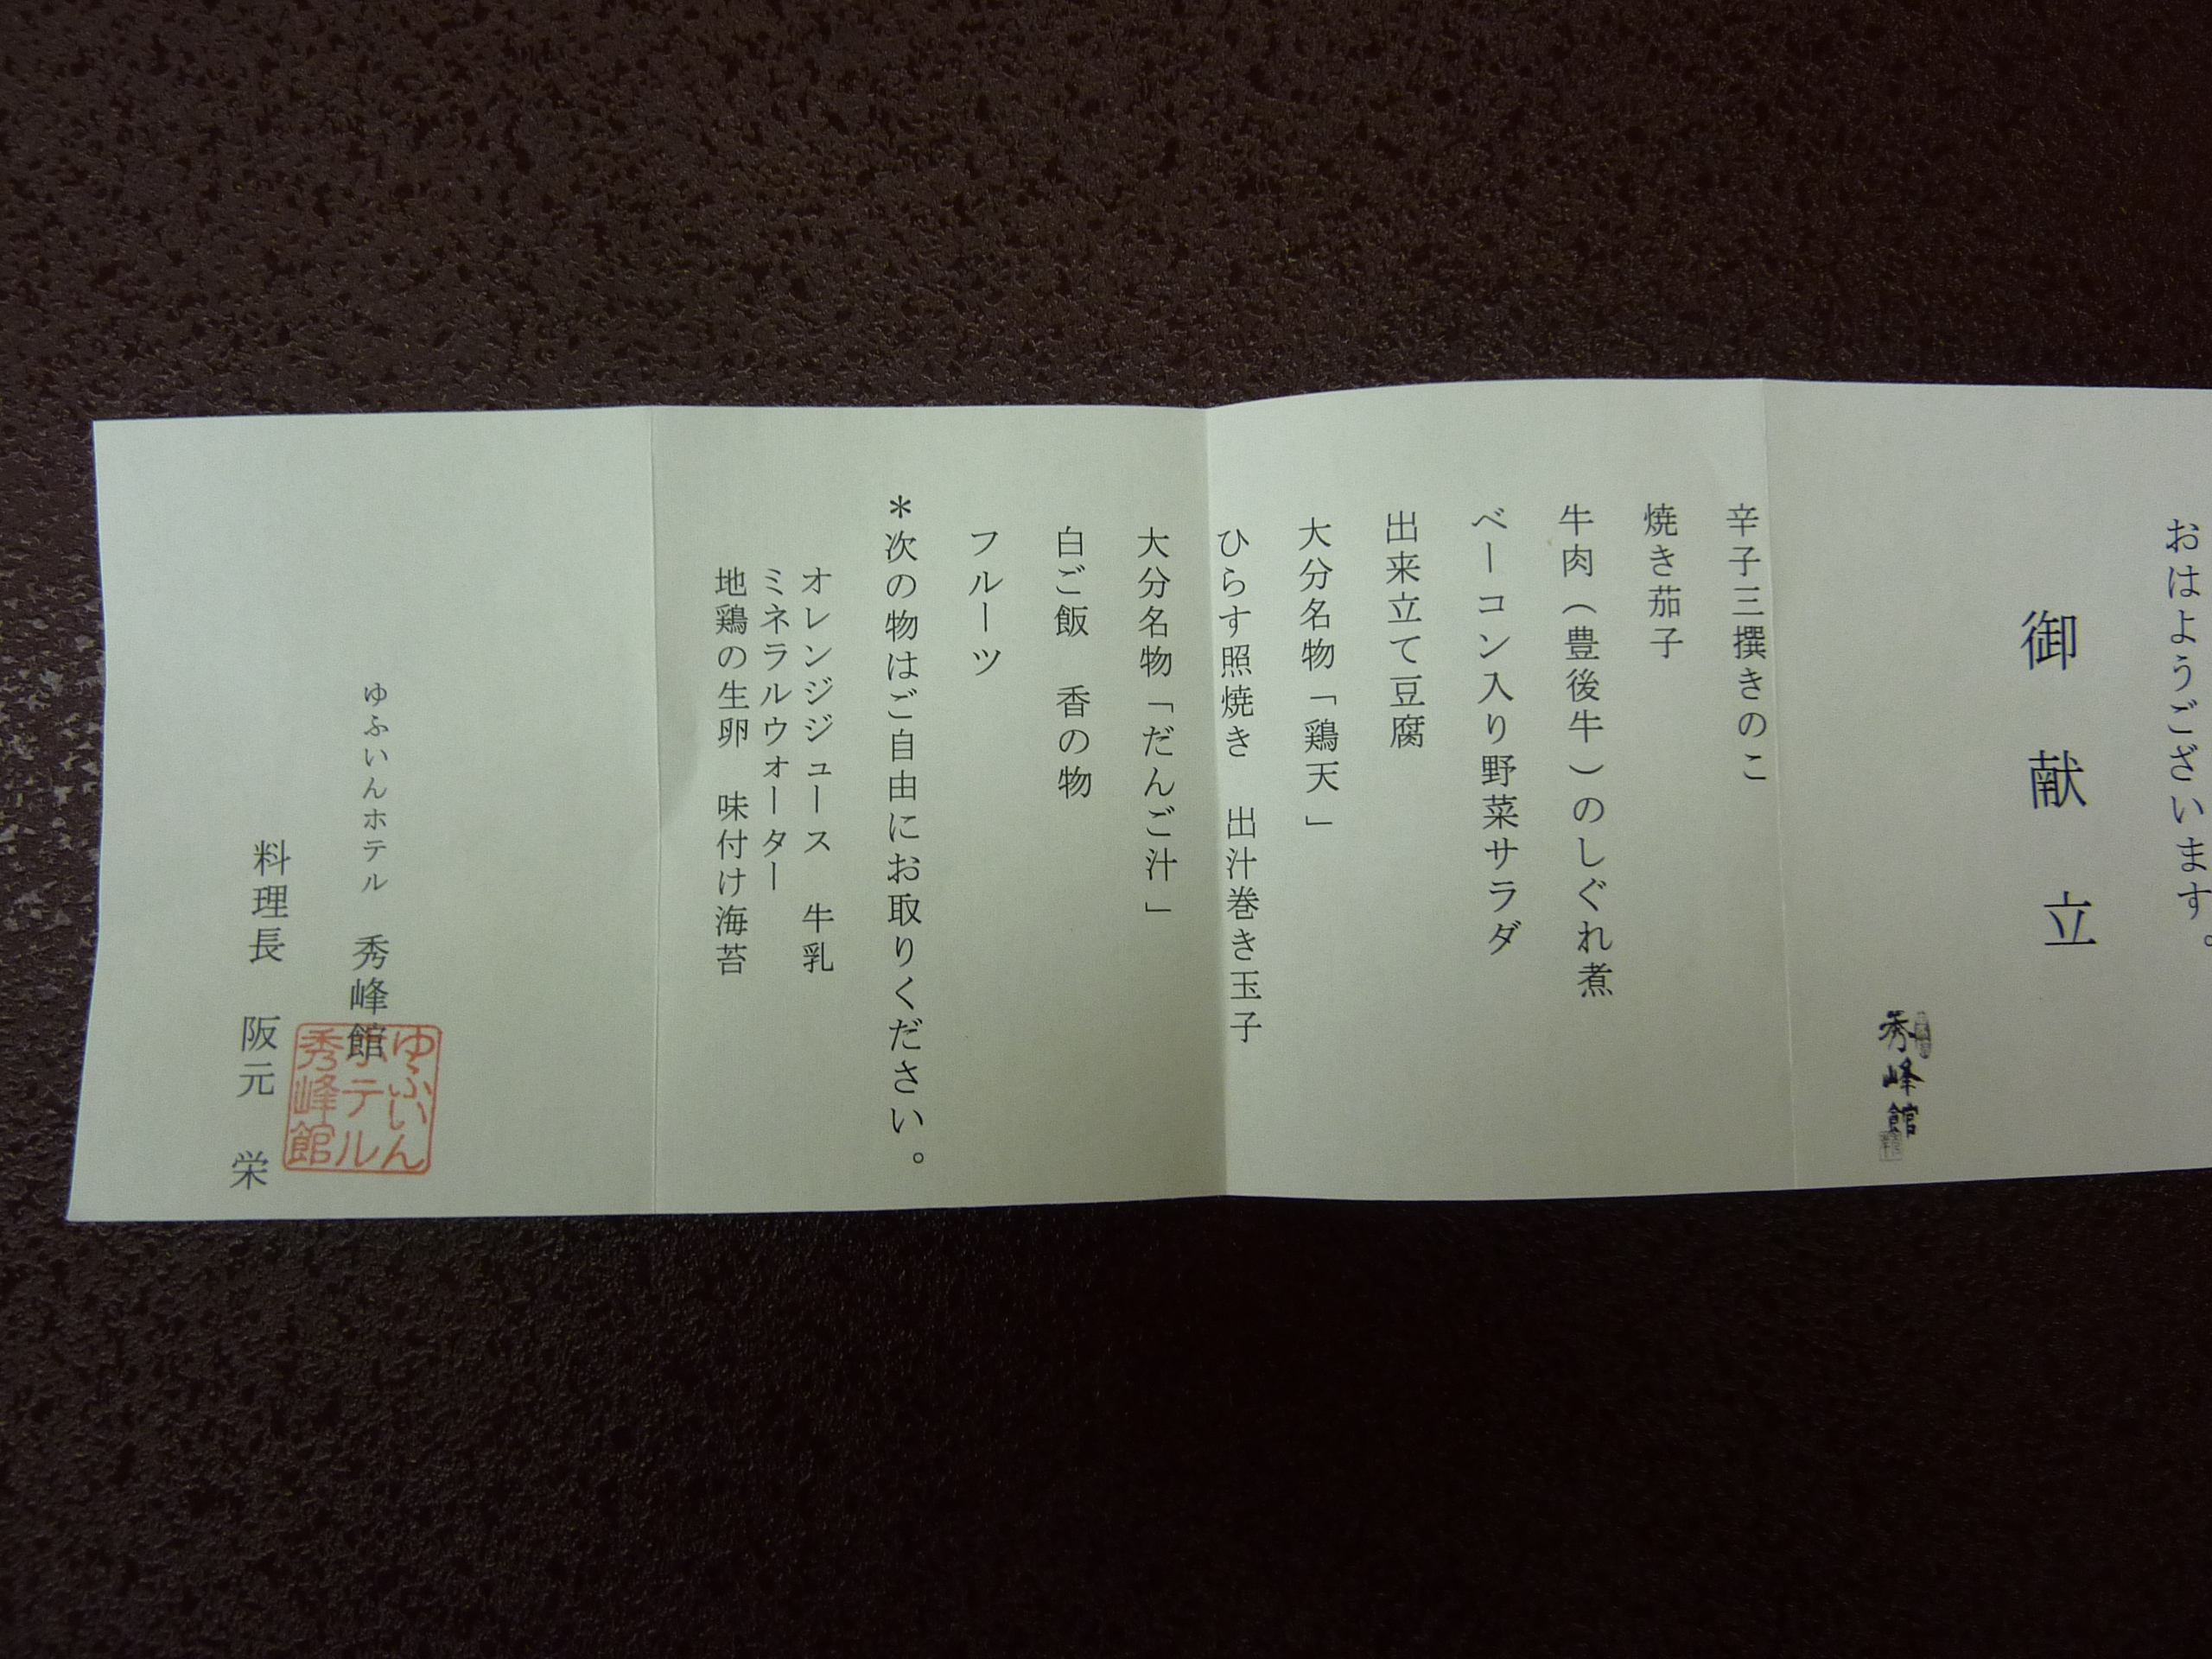 おはようございます。
御献立
秀峰館
辛子三撰きのこ
焼き茄子
牛肉(豊後牛)のしぐれ煮
ベーコン入り野菜サラダ
出来立て豆腐
大分名物「鶏天」
ひらす照焼き　出汁巻き玉子
大分名物「だんご汁」
白ご飯　香の物
フルーツ
＊次の物はご自由にお取りください。
オレンジジュース　牛乳
ミネラルウォーター
地鶏の生卵　味付け海苔
ゆふいんホテル　秀峰館
ゆふいん
ホテル
秀峰館
料理長　阪元　栄